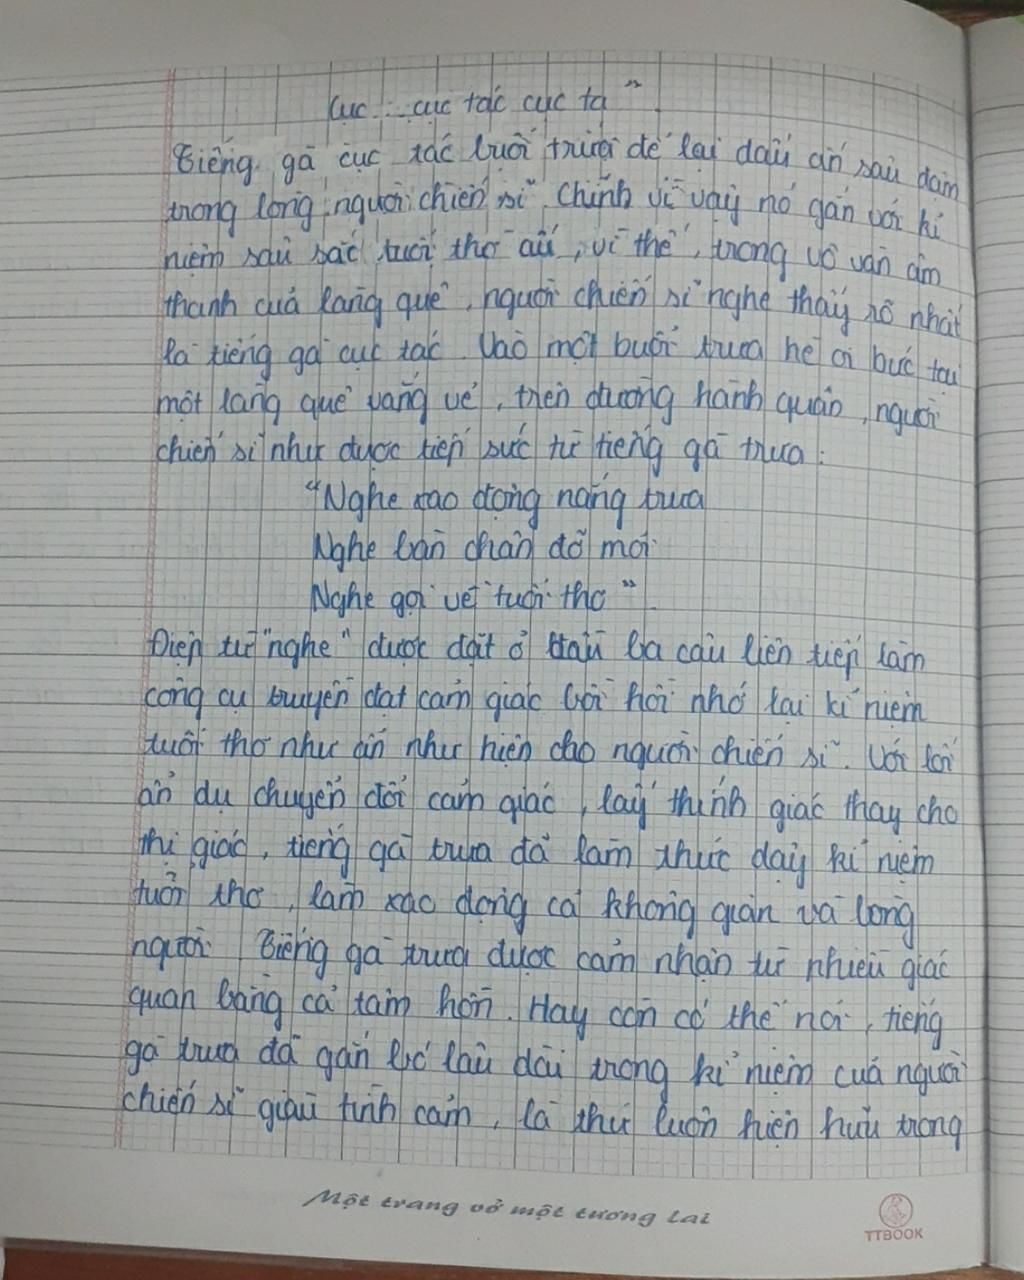 Cục...cục tác cục ta"
Tiếng gà cục tác buổi trưa để lại dấu ấn sâu đậm
trong lòng người chiến sĩ. Chính vì vậy nó gắn với kỉ
niệm sâu sắc tuổi thơ ấu, vì thế, trong vô vàn âm
thanh của làng quê, người chiến sĩ nghe thấy rõ nhất
là tiếng gà cục tác. Vào một buổi trưa hè oi bức tại
một làng quê vắng vẻ, trên đường hành quân, người
chiến sĩ như được tiếp sức từ tiếng gà trưa:
"Nghe xao động nắng trưa
Nghe bàn chân đỡ mỏi
Nghe gọi về tuổi thơ"
Điệp từ "nghe" được đặt ở đầu ba câu liên tiếp làm
công cụ truyền đạt cảm giác bồi hồi nhớ lại kỉ niệm
tuổi thơ như ẩn như hiện cho người chiến sĩ. Với lối
ẩn dụ chuyển đổi cảm giác, lấy thính giác thay cho
thị giác, tiếng gà trưa đã làm thức dậy kỉ niệm
tuổi thơ, làm xao động cả không gian và lòng
người. Tiếng gà trưa được cảm nhận từ nhiều giác
quan bằng cả tâm hồn. Hay còn có thể nói, tiếng
gà trưa đã gắn bó lâu dài trong kỉ niệm của người
chiến sĩ giàu tình cảm, là thứ luôn hiện hữu trong
Một trang vở một tương lai
TTBOOK